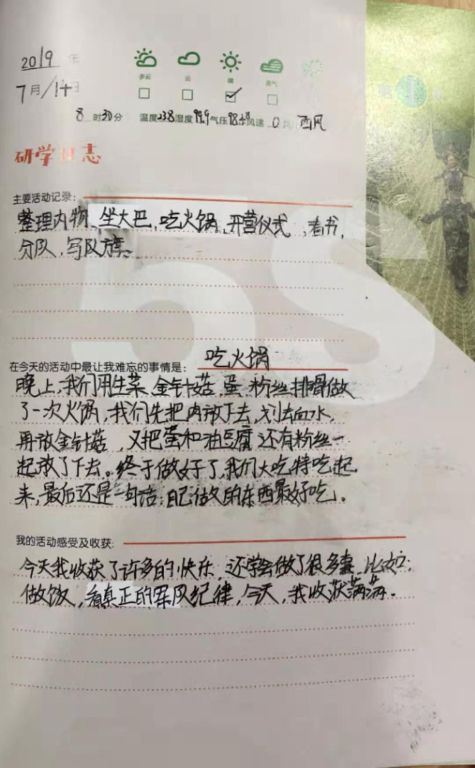 2019 年
7月/14日
多云 云 晴
8 时30分 温度238湿度 气压 风速 0 西风
研学日志
主要活动记录:
整理内物、坐大巴,吃火锅,开营仪式,看书,
分队,写队旗。
5S
在今天的活动中最让我难忘的事情是: 吃火锅
晚上,我们用生菜、金针菇、蛋、粉丝、排骨做
了一次火锅,我们先把肉放下去,去血水,
再放金针菇,又把蛋和油豆腐还有粉丝一
起放了下去。终于做好了,我们大吃特吃起
来,最后还是一句话:自己做的东西最好吃。
我的活动感受及收获:
今天我收获了许多的快乐,还学会做了很多事,比如:
做饭,真正的军风纪律,今天,我收获满满。